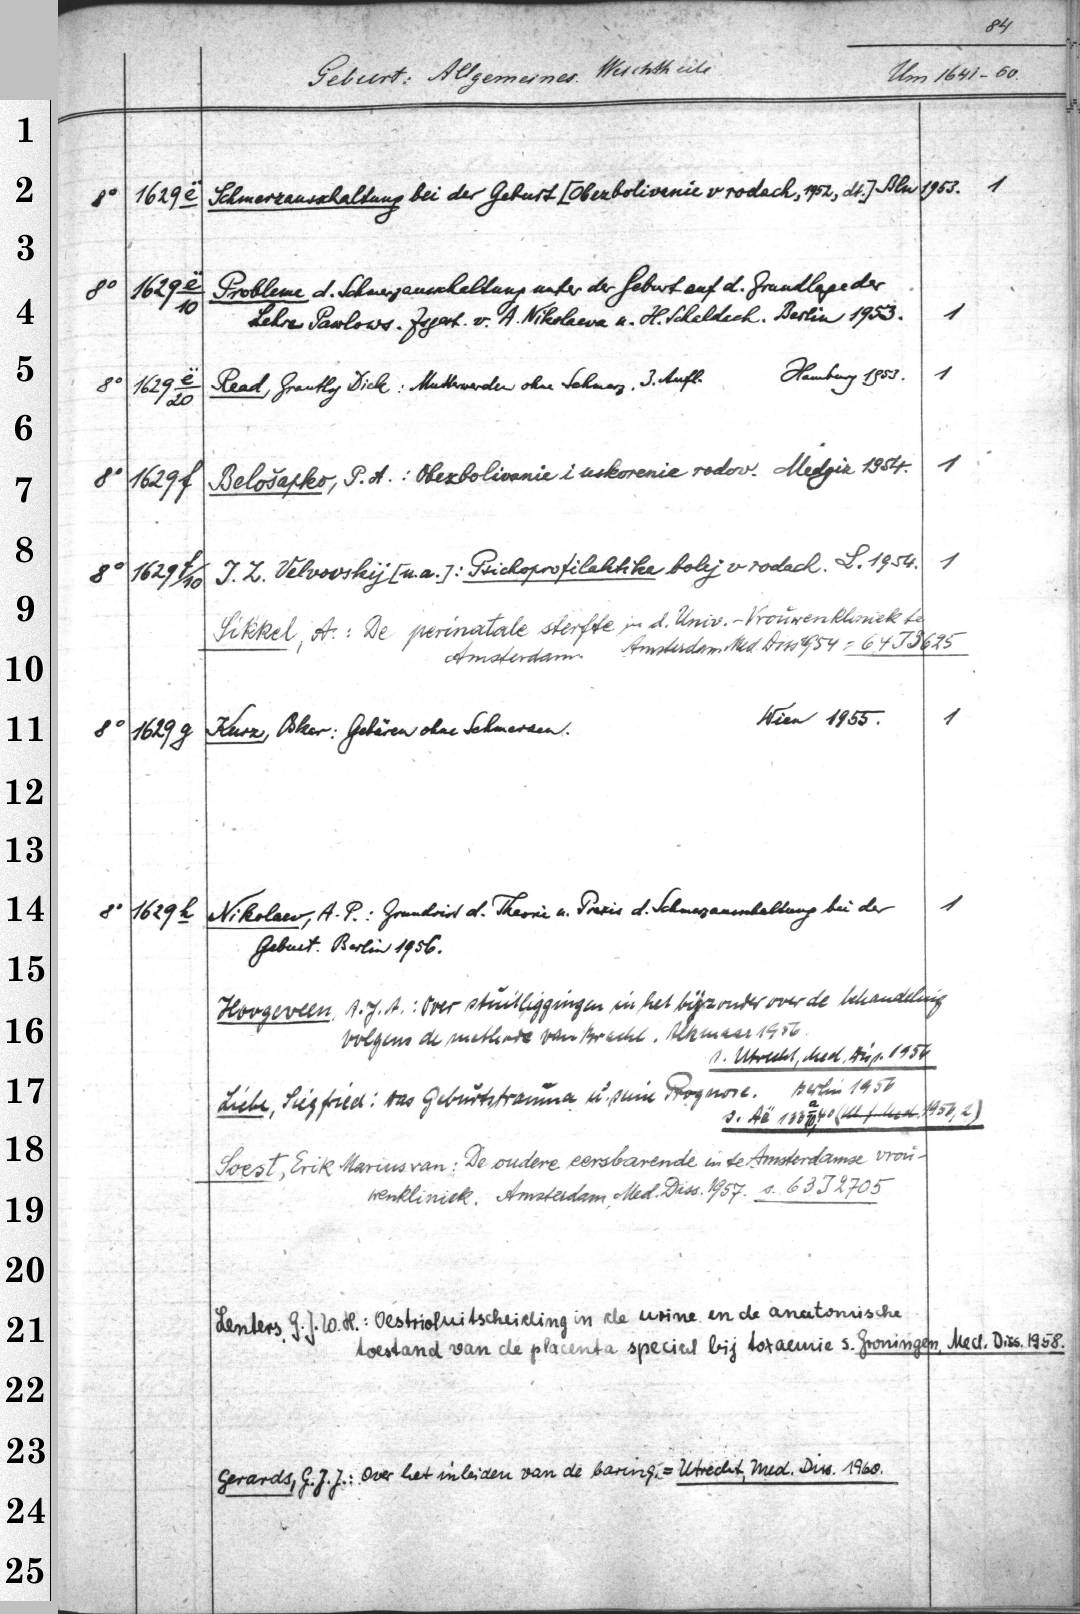 84
Geburt: Allgemeines. Um 1641-60.
1
2 8° 1629 ë Schmerzausschaltung bei der Geburt [Obezbolivanie v rodach, 1952, dt.] Bln 1953. 1
3
8° 1629 ë/10 Probleme d. Schmerzausschaltung unter der Geburt auf d. Grundlage der
4 Lehre Pawlows. Zsgest. v. A. Nikolaeva u. H. Scheldach. Berlin 1953. 1
5 8° 1629 ë/20 Read, Grantly Dick: Mutterwerden ohne Schmerz. 3. Aufl. Hamburg 1953. 1
6
7 8° 1629 f Belošapko, P. A.: Obezbolivanie i uskorenie rodov. Medgiz 1954. 1
8
8° 1629 f/10 I. Z. Velvovskij [u.a.]: Psichoprofilaktika bolej v rodach. L. 1954. 1
9 Sikkel, A.: De perinatale sterfte in d. Univ.-Vrouwenkliniek te
10 Amsterdam. Amsterdam, Med. Diss 1954 = 64 J 3625
11 8° 1629 g Kurz, Oskar: Gebären ohne Schmerzen. Wien 1955. 1
12
13
14 8° 1629 h Nikolaev, A. P.: Grundriss d. Theorie u. Praxis d. Schmerzausschaltung bei der 1
Geburt. Berlin 1956.
15
Hoogeveen, A. J. A.: Over stuitliggingen in het bijzonder over de behandeling
16 volgens de methode van Bracht. Alkmaar 1956.
s. Utrecht, Med. Diss. 1956
17 Liebe, Siegfried: Das Geburtstrauma u. seine Prognose. Berlin 1956
s. Aä 1956, 2)
18 Soest, Erik Marius van: De oudere eerstbarende in de Amsterdamse vrou-
19 wenkliniek. Amsterdam, Med. Diss. 1957. s. 63 J 2705
20
21 Lenters, G. J. W. H.: Oestrioluitscheiding in de urine en de anatomische
toestand van de placenta speciaal bij toxaemie s. Groningen, Med. Diss. 1958.
22
23
Gerards, G. J. J.: Over het inleiden van de baring. = Utrecht, Med. Diss. 1960.
24
25